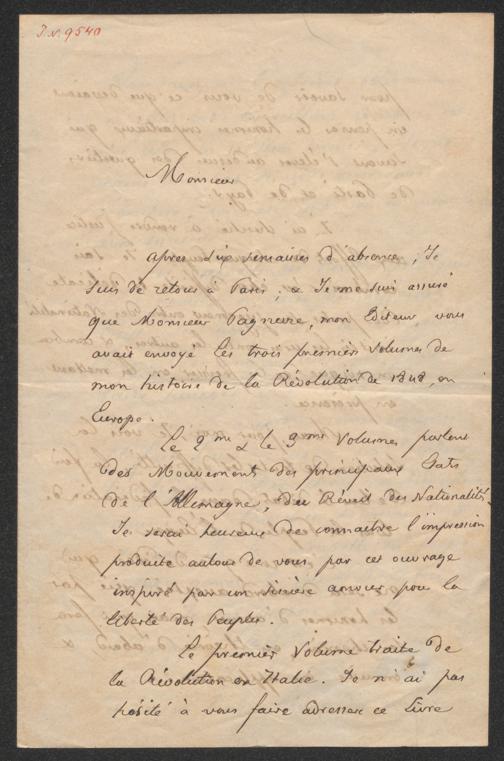 J.N. 9540
Monsieur
après six semaines d'absence, Je
suis de retour à Paris, & Je me suis assuré
que Monsieur Pagnerre, mon Editeur vous
avait envoyé les trois premiers volumes de
mon histoire de la Révolution de 1848, en
Europe.
Le 2me & le 3me Volumes parlent
des Mouvements des principaux Etats
de l'Allemagne, du Réveil des Nationalités.
Je serai heureux de connaitre l'impression
produite autour de vous par cet ouvrage
inspiré par un sincère amour pour la
liberté des Peuples.
Le premier Volume traite de
la Révolution en Italie. Je n'ai pas
hésité à vous faire adresser ce Livre